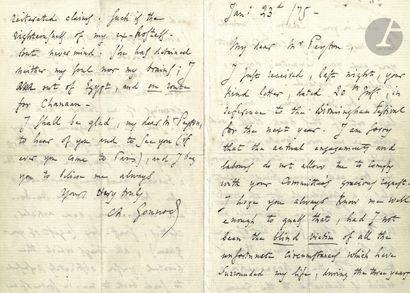 Jan: 23d /75
My dear Mr Peyton,
I just received, last night, your
kind letter, dated 20th inst, in
reference to the Birmingham festival
for the next year. I am sorry
that the actual engagements and
labours do not allow me to comply
with your Committee's gracious request.
I hope you always know me well
enough to guess that, had I not
been the blind victim of all the
unfortunate circumstances which have
surrounded my life, during the three years
reiterated claims. Such is the
righteousness of my ex-hostess-
but never mind: She has detained
neither my soul nor my brains; I
am out of Egypt, and en route
for Chanaan.
I shall be glad, my dear Mr Peyton,
to hear of you and to see you (if
ever you come to Paris), and I beg
you to believe me always
Yours very truly
Ch. Gounod